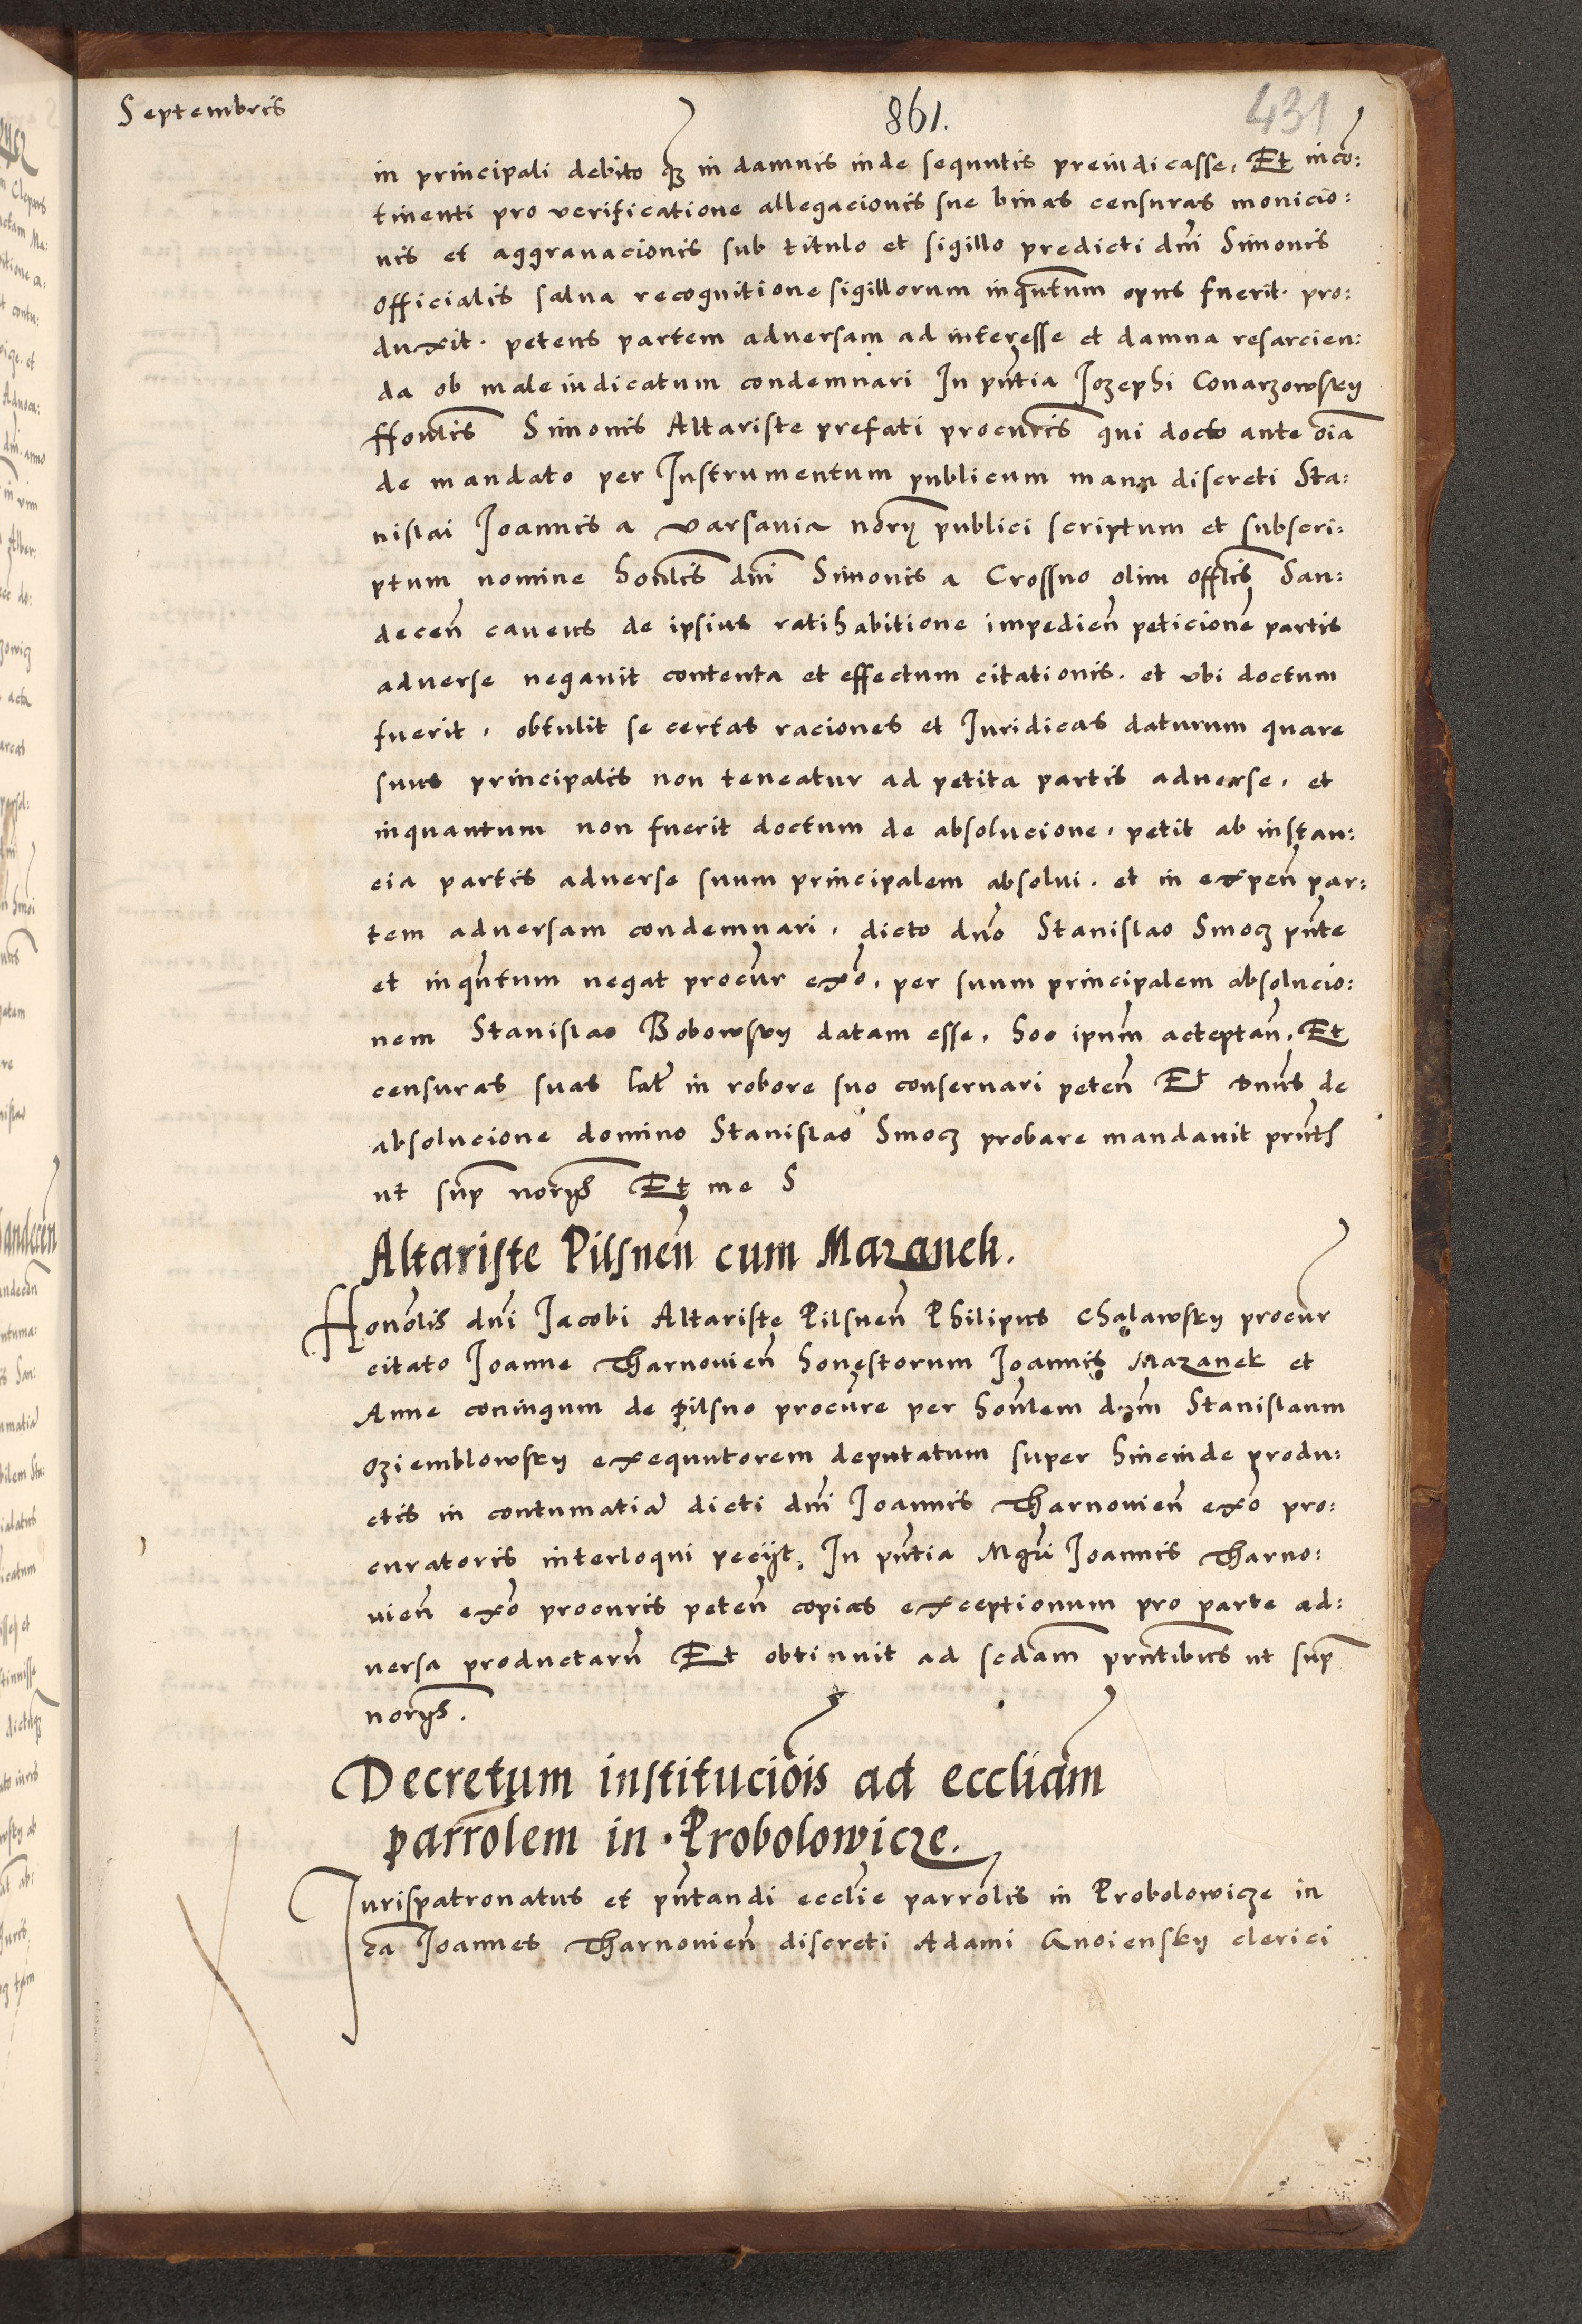 Septembris
861.
431
in principali debito qz in damnis inde sequutis preiudicasse, Et inco:
tinenti pro verificatione allegacionis sue binas censuras monicio:
nis et aggravacionis sub titulo et sigillo predicti dni Simonis
officialis salva recognitione sigillorum inqntum opus fuerit. pro:
duxit. petens partem adversam ad interesse et damna resarcien:
da ob male iudicatum condemnari In pntia Iozephi Conarzowsky
ffonlis Simonis Altariste prefati procuris qui docto ante oia
de mandato per Instrumentum publicum manu discreti Sta:
nislai Ioannis a varsavia norij publici scriptum et subscri:
ptum nomine honlis dni Simonis a Crossno olim offlis San:
decen cavens de ipsius ratihabitione impedien peticione partis
adverse negavit contenta et effectum citationis. et ubi doctum
fuerit, obtulit se certas raciones et Iuridicas daturum quare
suus principalis non teneatur ad petita partis adverse, et
inquantum non fuerit doctum de absolucione, petit ab instan:
cia partis adverse suum principalem absolvi. et in expen par:
tem adversam condemnari, dicto dno Stanislao Smocz pnte
et inqntum negat procur exo, per suum principalem absolucio:
nem Stanislao Bobowsky datam esse, hoc ipum acceptan, Et
censuras suas latr in robore suo conservari peten Et dnus de
absolucione domino Stanislao Smocz probare mandavit pntb
ut sup norijs Et me S
Altariste Pilsnen cum Mazanek.
Honolis dni Iacobi Altariste Pilsnen Philipus Chalawsky procur
citato Ioanne Tharnovien honestorum Ioannis Mazanek et
Anne coniugum de pilsno procure per honlem dnm Stanislaum
oziemblowsky exequutorem deputatum super hincinde produ:
ctis in contumatia dicti dni Ioannis Tharnovien exo pro:
curatoris interloqui peciit, In pntia Mgri Ioannis Tharno:
vien exo procuris peten copias exceptionum pro parte ad:
versa productaru Et obtinuit ad sedam pntibus ut sup
norijs.
Decretum institucois ad eccliam
parrolem in . Probolowicze.
Iurispatronatus et pntandi ecclie parrolis in Probolowicze in
ca Ioannes Tharnovien discreti Adami Gnoiensky clerici